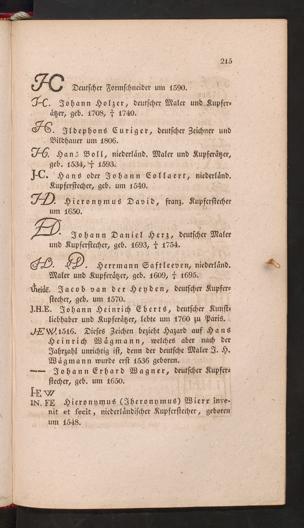 215
HC Deutscher Formschneider um 1590.
H-C. Johann Holzer, deutscher Maler und Kupfer-
ätzer, geb. 1708, † 1740.
Ildephons Curiger, deutscher Zeichner und
Bildhauer um 1806.
Hans Boll, niederländ. Maler und Kupferätzer,
geb. 1534, † 1593.
J-C. Hans oder Johann Collaert, niederländ.
Kupferstecher, geb. um 1540.
Hieronymus David, franz. Kupferstecher
um 1650.
Johann Daniel Hertz, deutscher Maler
und Kupferstecher, geb. 1693, † 1754.
Herrmann Saftleeven, niederländ.
Maler und Kupferätzer, geb. 1609, † 1695.
Jacob van der Heyden, deutscher Kupfer-
stecher, geb. um 1570.
J.H.E. Johann Heinrich Eberts, deutscher Kunst-
liebhaber und Kupferätzer, lebte um 1760 zu Paris.
J-E W.1516. Dieses Zeichen bezieht Hazard auf Hans
Heinrich Wägmann, welches aber nach der
Jahrzahl unrichtig ist, denn der deutsche Maler J. H.
Wägmann wurde erst 1536 geboren.
—— Johann Erhard Wagner, deutscher Kupfer-
stecher, geb. um 1650.
I-E W
IN. FE Hieronymus (Jheronymus) Wierx inve-
nit et fecit, niederländischer Kupferstecher, geboren
um 1548.